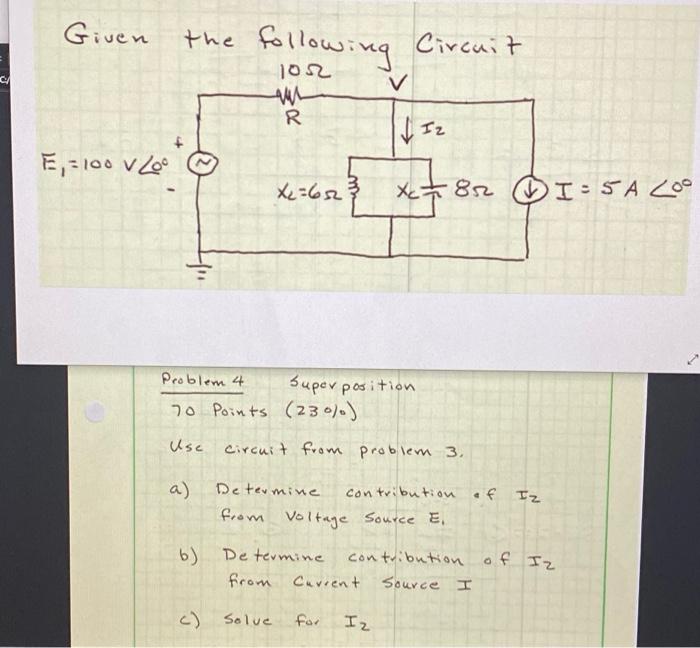 Given the following Circuit
10Ω
V
R
↓ I2
+
E1 = 100 V∠0°
-
XL=6Ω
Xc
8Ω
I = 5 A ∠0°
Problem 4 Superposition
70 Points (23%)
Use circuit from problem 3.
a) Determine contribution of I2
from Voltage Source E1
b) Determine contribution of I2
from Current Source I
c) Solve for I2